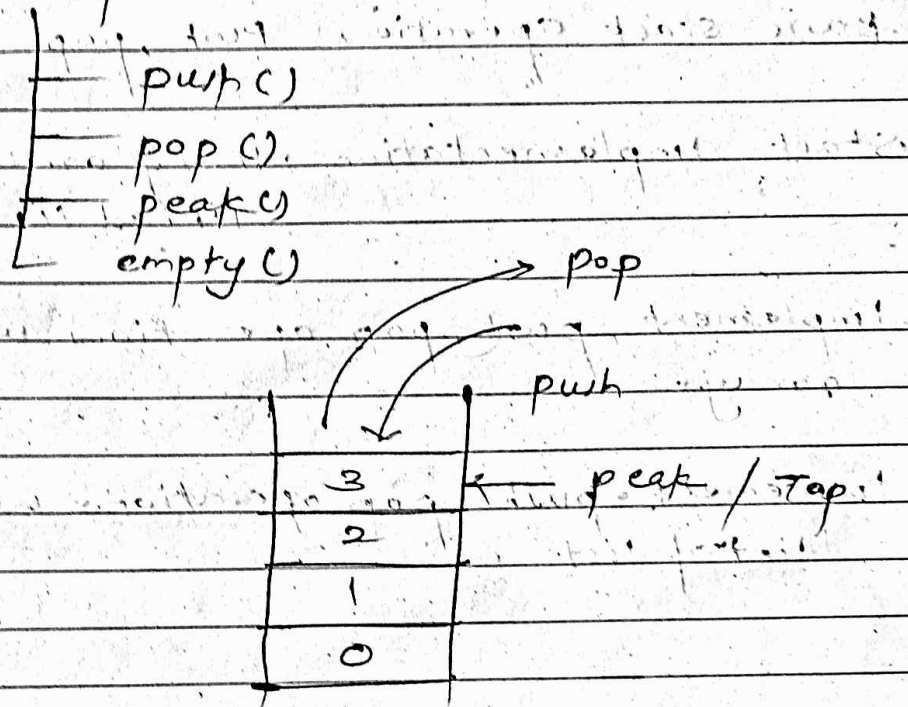 push()
pop()
peak()
empty()
pop
push
3
peak / Top
2
1
0